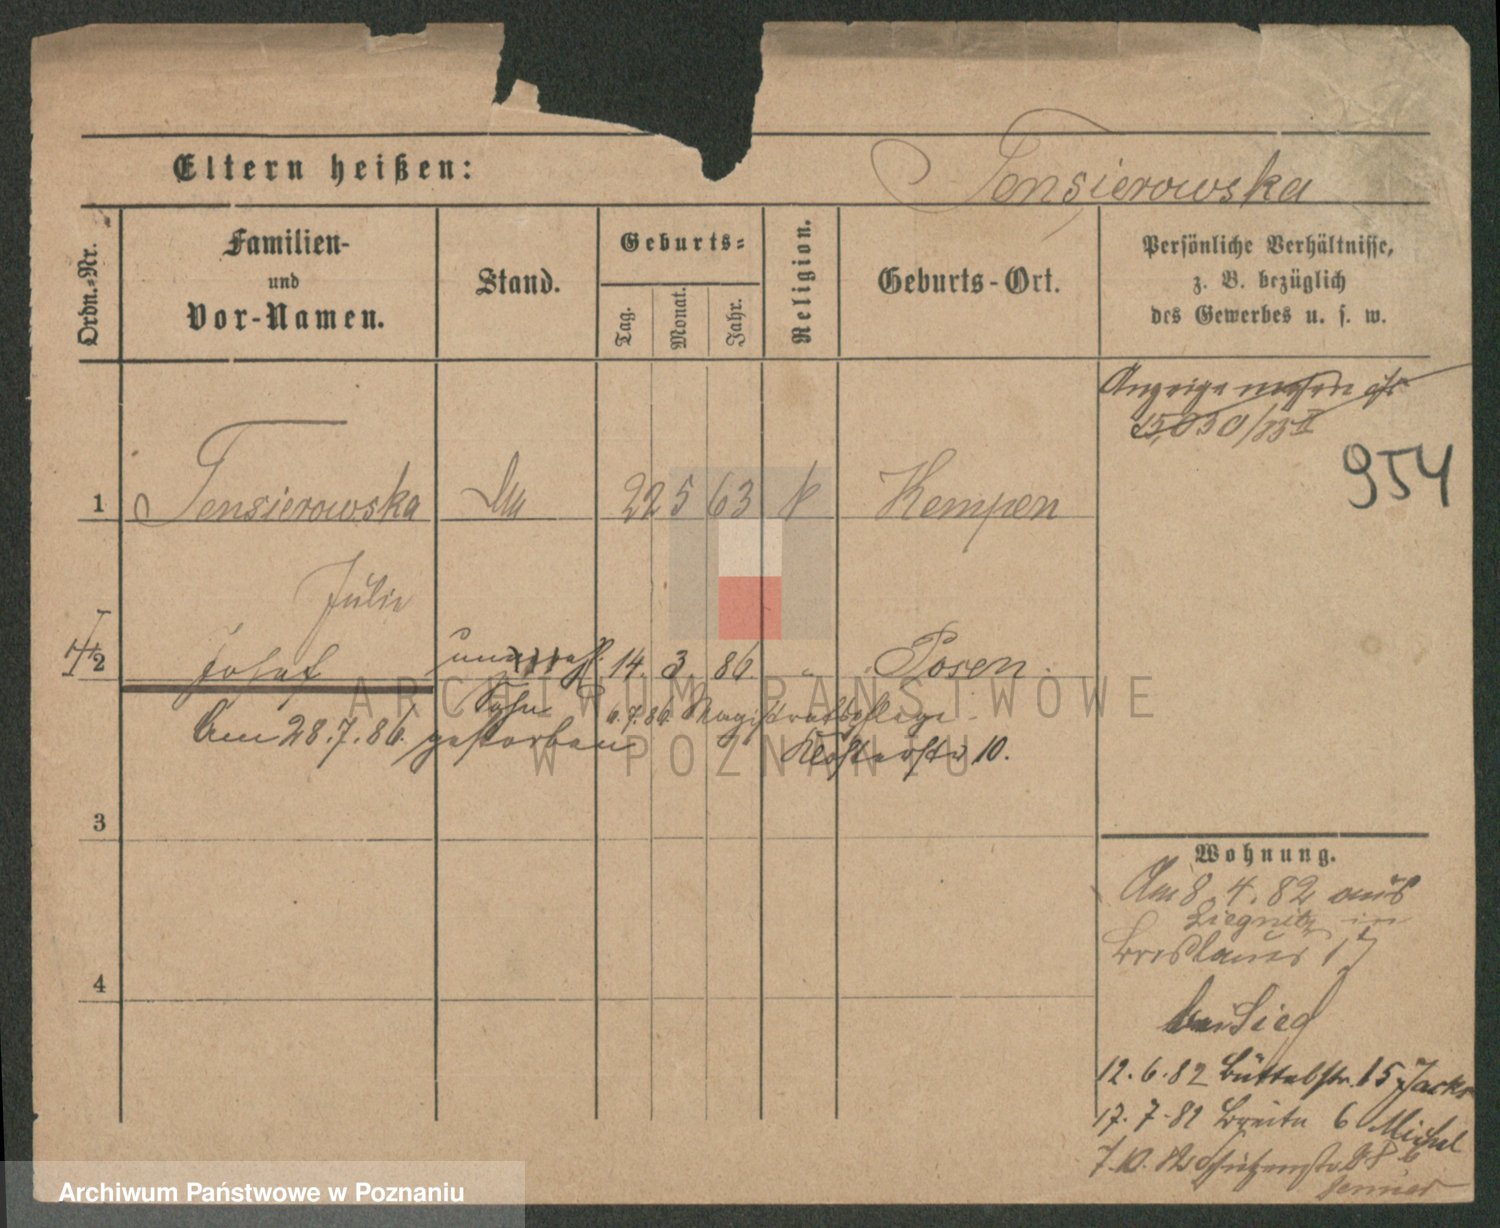 Eltern heißen:
Tensierowska
Ordn.-Nr.
Familien-
und
Vor-Namen.
Stand.
Geburts-
Tag.
Monat.
Jahr.
Religion.
Geburts-Ort.
Persönliche Verhältnisse,
z. B. bezüglich
des Gewerbes u. s. w.
Anzeige
954
1 Tensierowska 22 5 63 k Kempen
Julie
2 Josef 14. 3. 86. " Posen.
Sohn 6.7.86. Magistratspflege
Am 28.7.86. gestorben Klosterstr 10.
3
4
Wohnung.
Am 8.4.82 aus
Liegnitz in
Breslauer 17
bei Sieg
12.6.82 Büttelstr. 15 Jacks
17.7.82 Breite 6 Michel
7.10.82 Schützenstr
ARCHIWUM PAŃSTWOWE
W POZNANIU
Archiwum Państwowe w Poznaniu